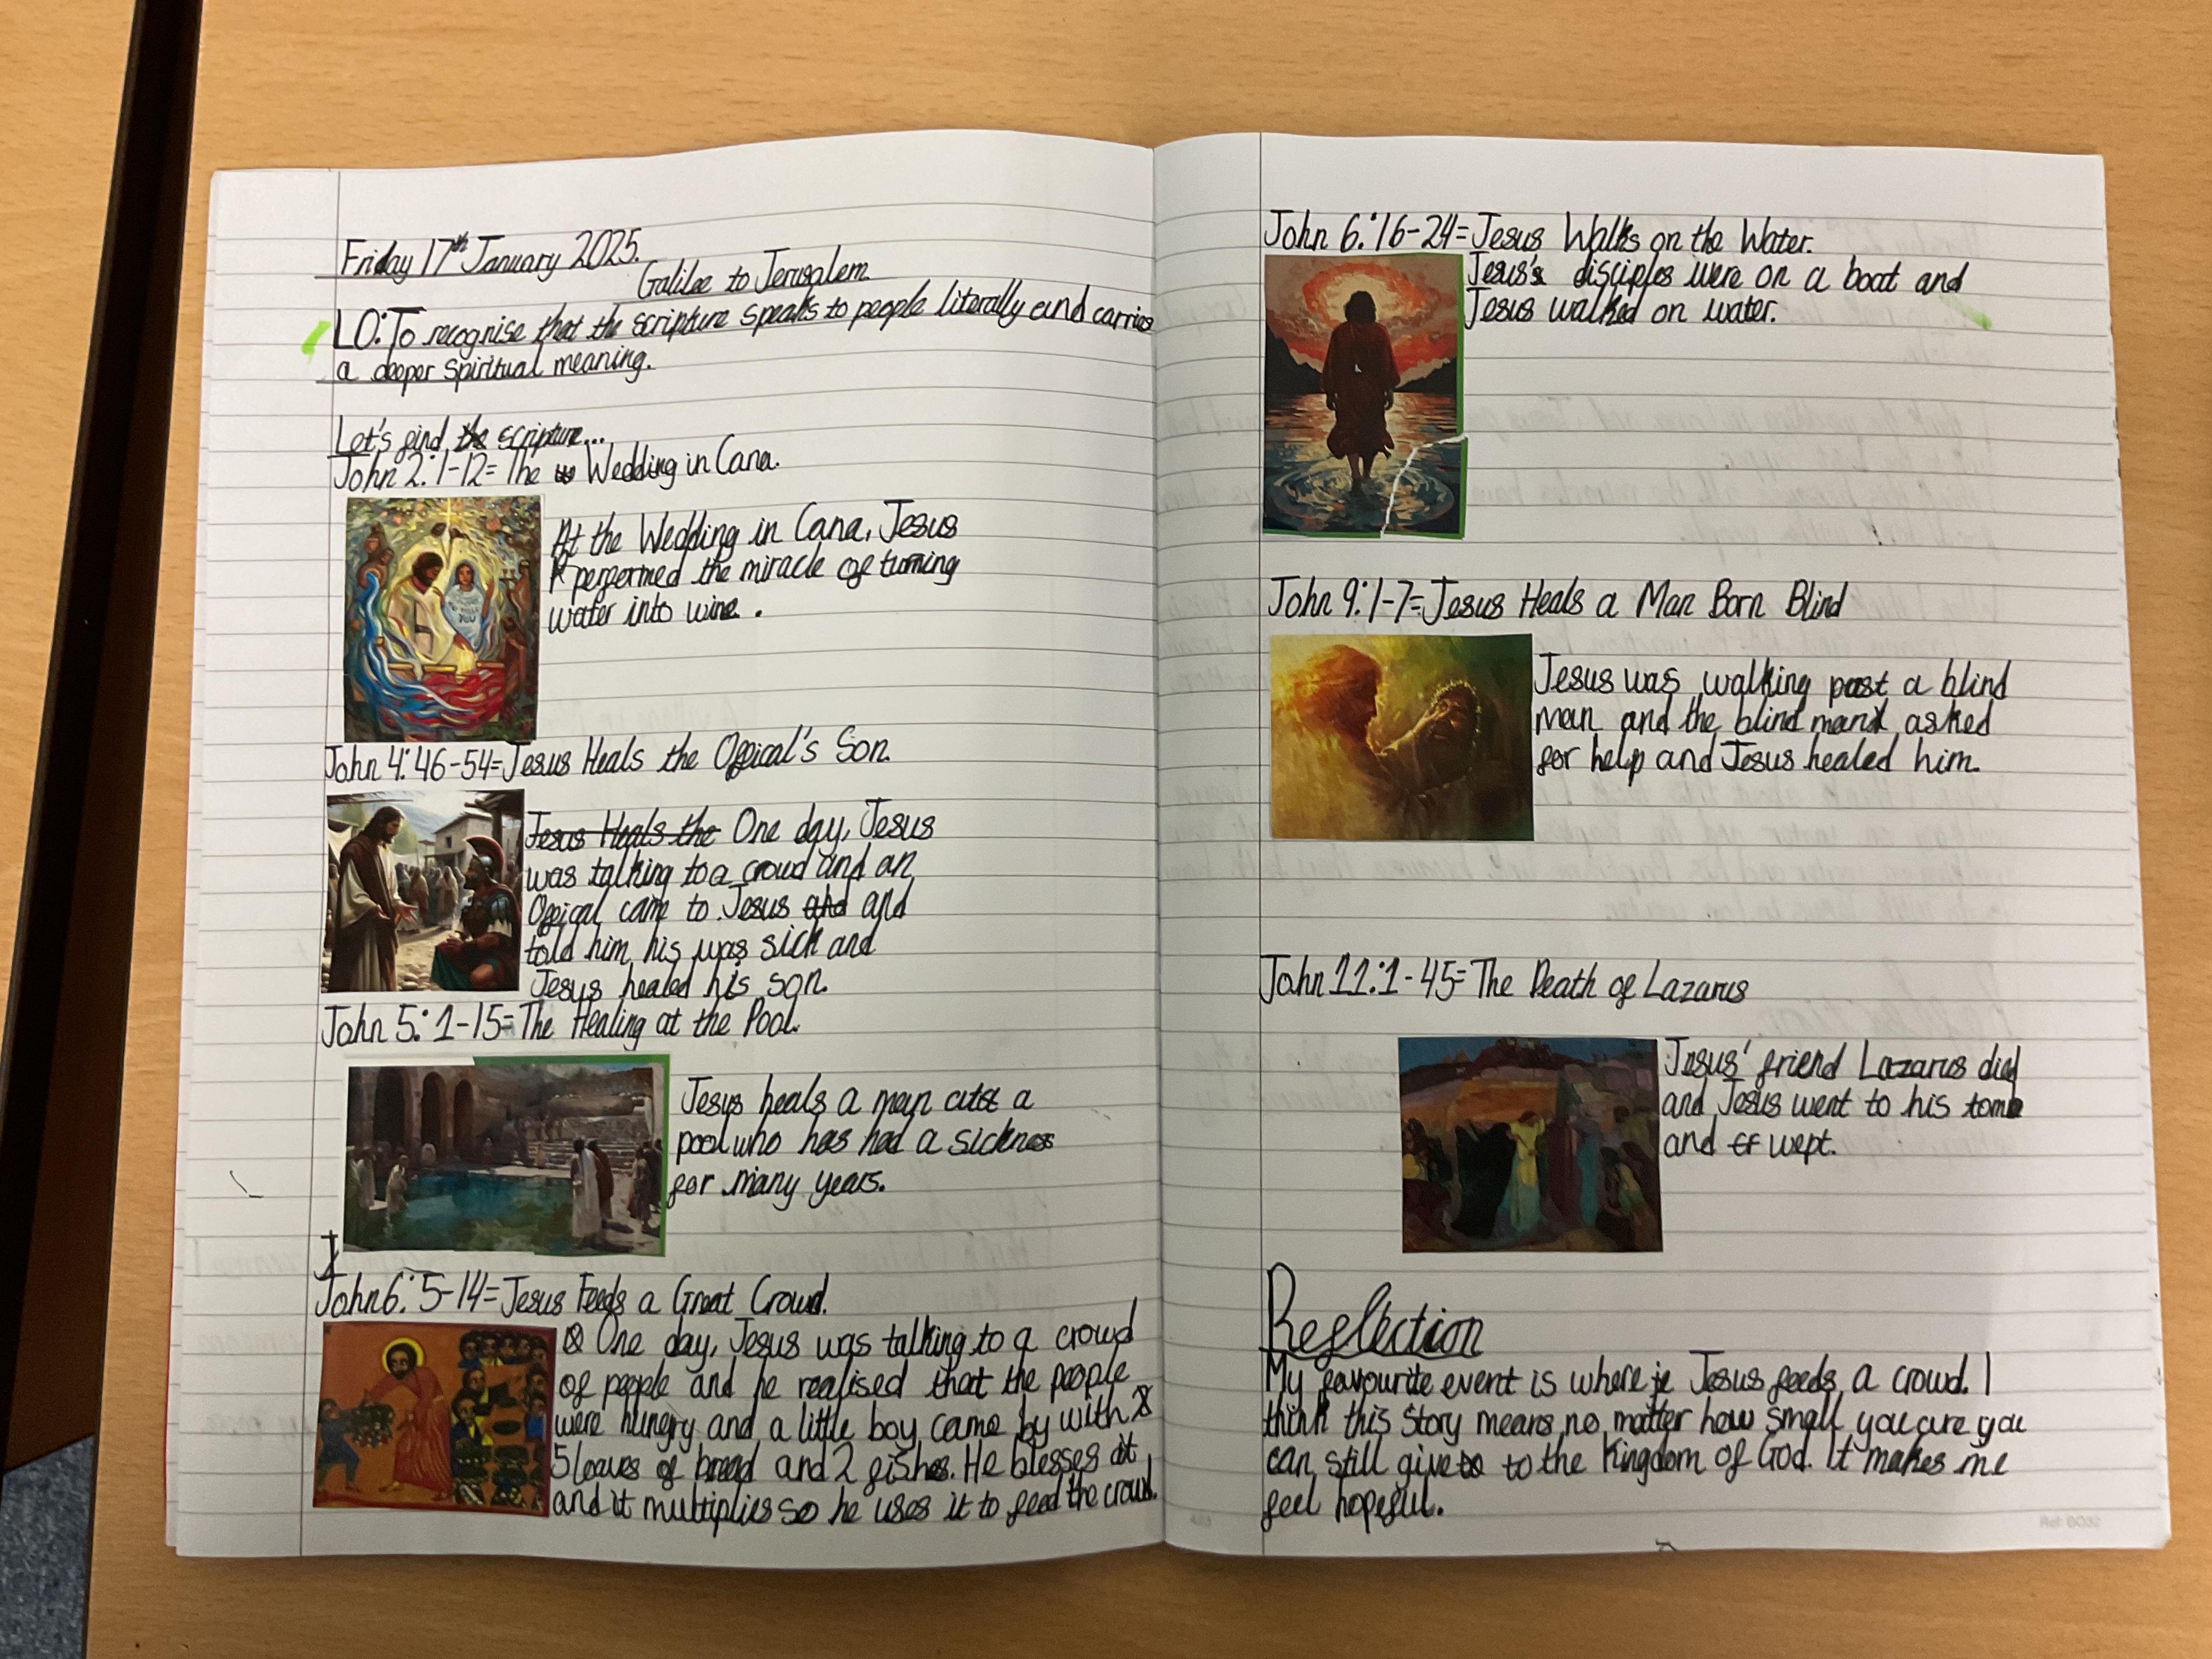 Friday 17th January 2025.
Galilee to Jerusalem.
LO: To recognise that the scripture speaks to people literally and carries
a deeper spiritual meaning.
Let's find the scripture...
John 2:1-12= The Wedding in Cana.
At the Wedding in Cana, Jesus
performed the miracle of turning
water into wine.
John 4:46-54=Jesus Heals the Offical's Son.
Jesus Heals the One day, Jesus
was talking to a crowd and an
Offical came to Jesus and and
told him his was sick and
Jesus healed his son.
John 5:1-15=The Healing at the Pool.
Jesus heals a man at a
pool who has had a sickness
for many years.
J
John 6:5-14=Jesus Feeds a Great Crowd.
One day, Jesus was talking to a crowd
of people and he realised that the people
were hungry and a little boy came by with
5 loaves of bread and 2 fishes. He blesses it
and it multiplies so he uses it to feed the crowd.
John 6:16-24=Jesus Walks on the Water.
Jesus's disciples were on a boat and
Jesus walked on water.
John 9:1-7=Jesus Heals a Man Born Blind
Jesus was walking past a blind
man and the blind man asked
for help and Jesus healed him.
John 11:1-45=The Death of Lazarus
Jesus' friend Lazarus died
and Jesus went to his tomb
and wept.
Reflection
My favourite event is where Jesus feeds a crowd. I
think this story means no matter how small you are you
can still give to to the Kingdom of God. It makes me
feel hopeful.